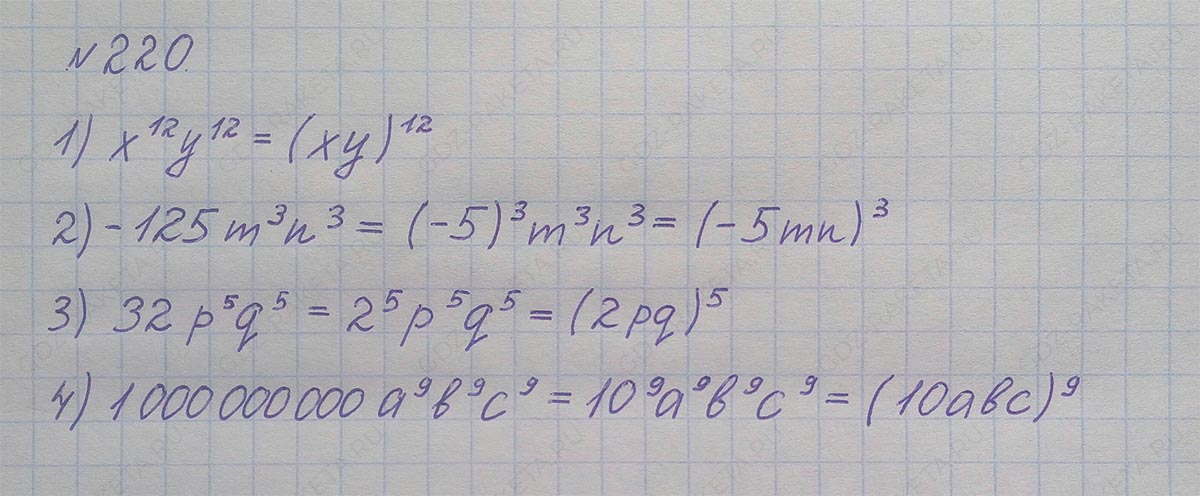 №220.
1) x¹²y¹² = (xy)¹²
2) -125m³n³ = (-5)³m³n³ = (-5mn)³
3) 32p⁵q⁵ = 2⁵p⁵q⁵ = (2pq)⁵
4) 1 000 000 000 a⁹b⁹c⁹ = 10⁹a⁹b⁹c⁹ = (10abc)⁹